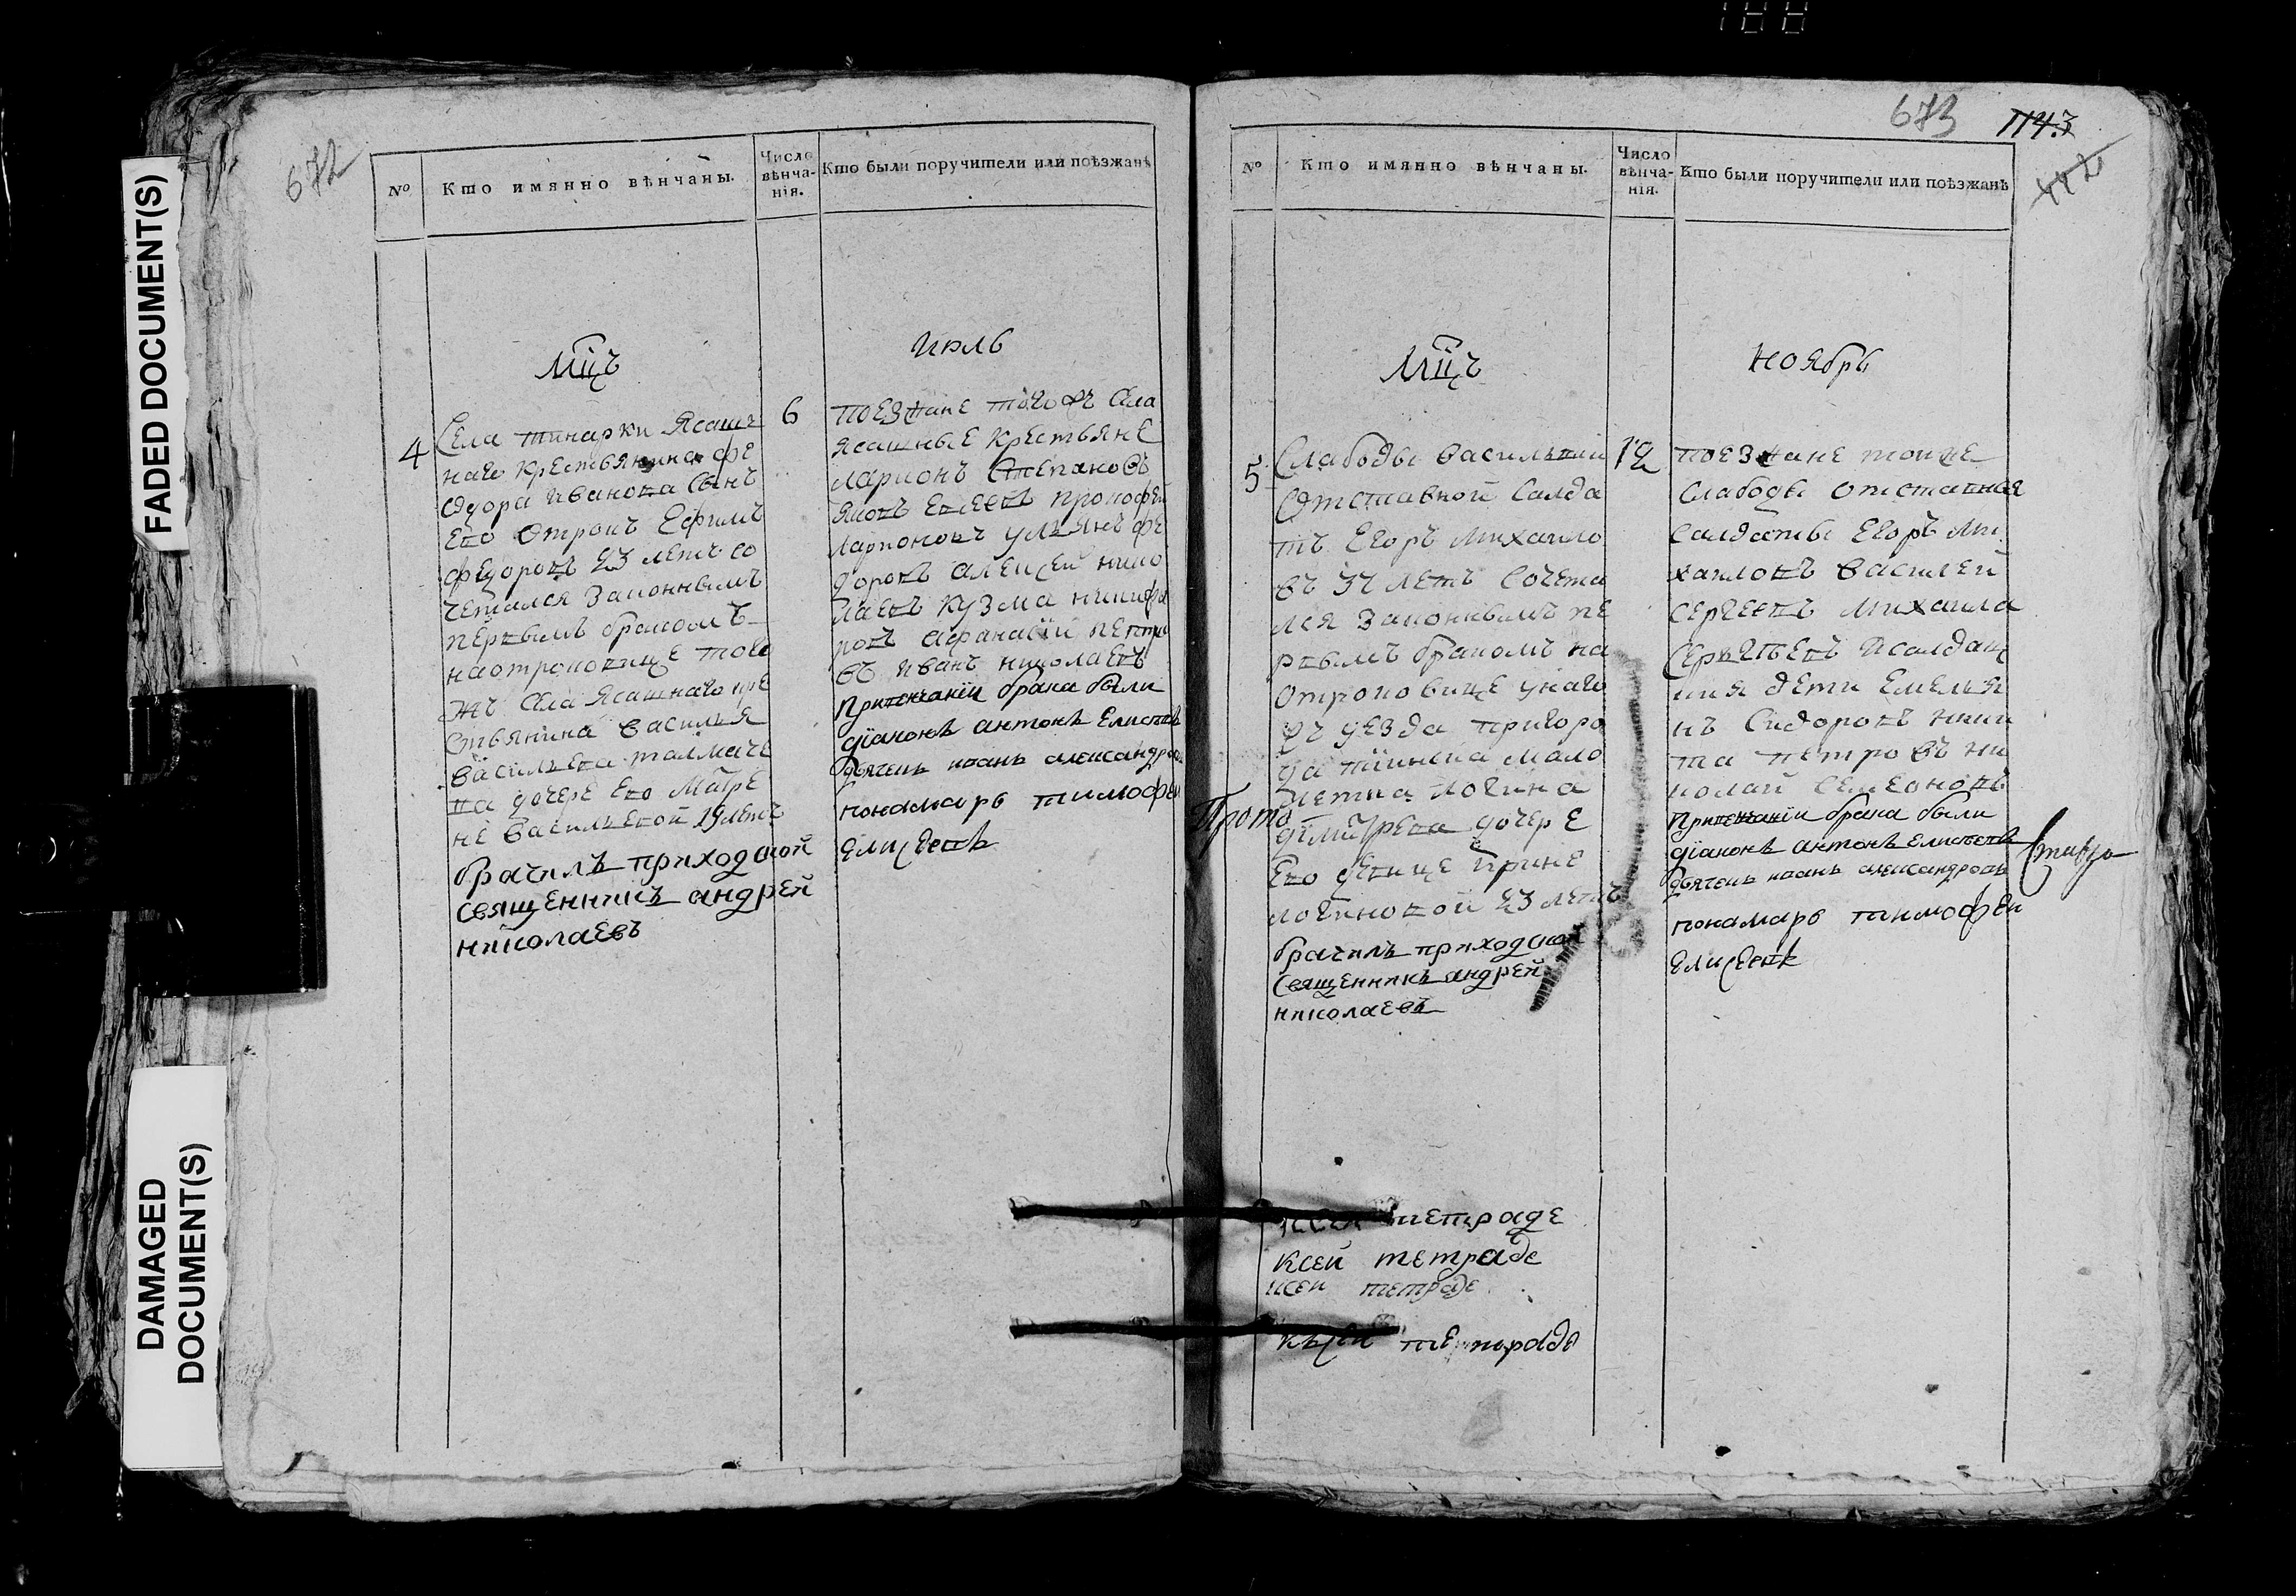 188
FADED DOCUMENT(S)
DAMAGED
DOCUMENT(S)
672
№ Кто имянно вѣнчаны. Число вѣнча-нія. Кто были поручители или поѣзжанѣ
Мцъ
Июль
4
Села тинарки Ясаш
наго крестьянина фе
едора Иванова Сынъ
Ево Отрокъ Ефимъ
федоровъ 23 летъ со
четался законнымъ
первымъ бракомъ
наотроковице того
жъ Села Ясашнаго кре
стьянина Василья
Васильева толмаче
ва дочере Ево Матре
не Васильевой 19 летъ
брачилъ приходской
священникъ андрей
николаевъ
6
поезжане того жъ Села
Ясашные Крестьяне
ларионъ Степановъ
Яковъ Елеевъ прокофей
ларионовъ ульянъ фе
доровъ алексей нико
лаевъ кузма никифо
ровъ афанасий петро
въ Иванъ николаевъ
Привенчании брака были
диаконъ антонъ
дьячекъ иванъ александровъ
пономарь тимофеи
Елисеевъ
673
1143
442
№ Кто имянно вѣнчаны. Число вѣнча-нія. Кто были поручители или поѣзжанѣ
Мцъ
Ноябрь
5
Слабоды Васильевки
Отставной Салда
тъ Егоръ Михаило
въ 34 летъ Сочета
лся законнымъ пе
рвымъ бракомъ на
отроковице
жъ уезда пригоро
да тиинска мало
летка логина
димитрева дочере
Ево девице Ирине
логиновой 23 летъ
брачилъ приходской
Священникъ андрей
николаевъ
12
поезжане тоиже
Слабоды отставные
Салдаты Егоръ Ми
хаиловъ Василей
Сергеевъ Михаила
Сергеевъ Исалдац
кия дети Емелья
нъ Сидоровъ ники
та петровъ ни
колай Семеоновъ
Привенчании брака были
диаконъ антонъ
дьячекъ иванъ александровъ
пономарь тимофеи
Елисеевъ
Прото
ксеи тетраде
ксеи тетраде
ксеи тетраде
къ сеи тетраде